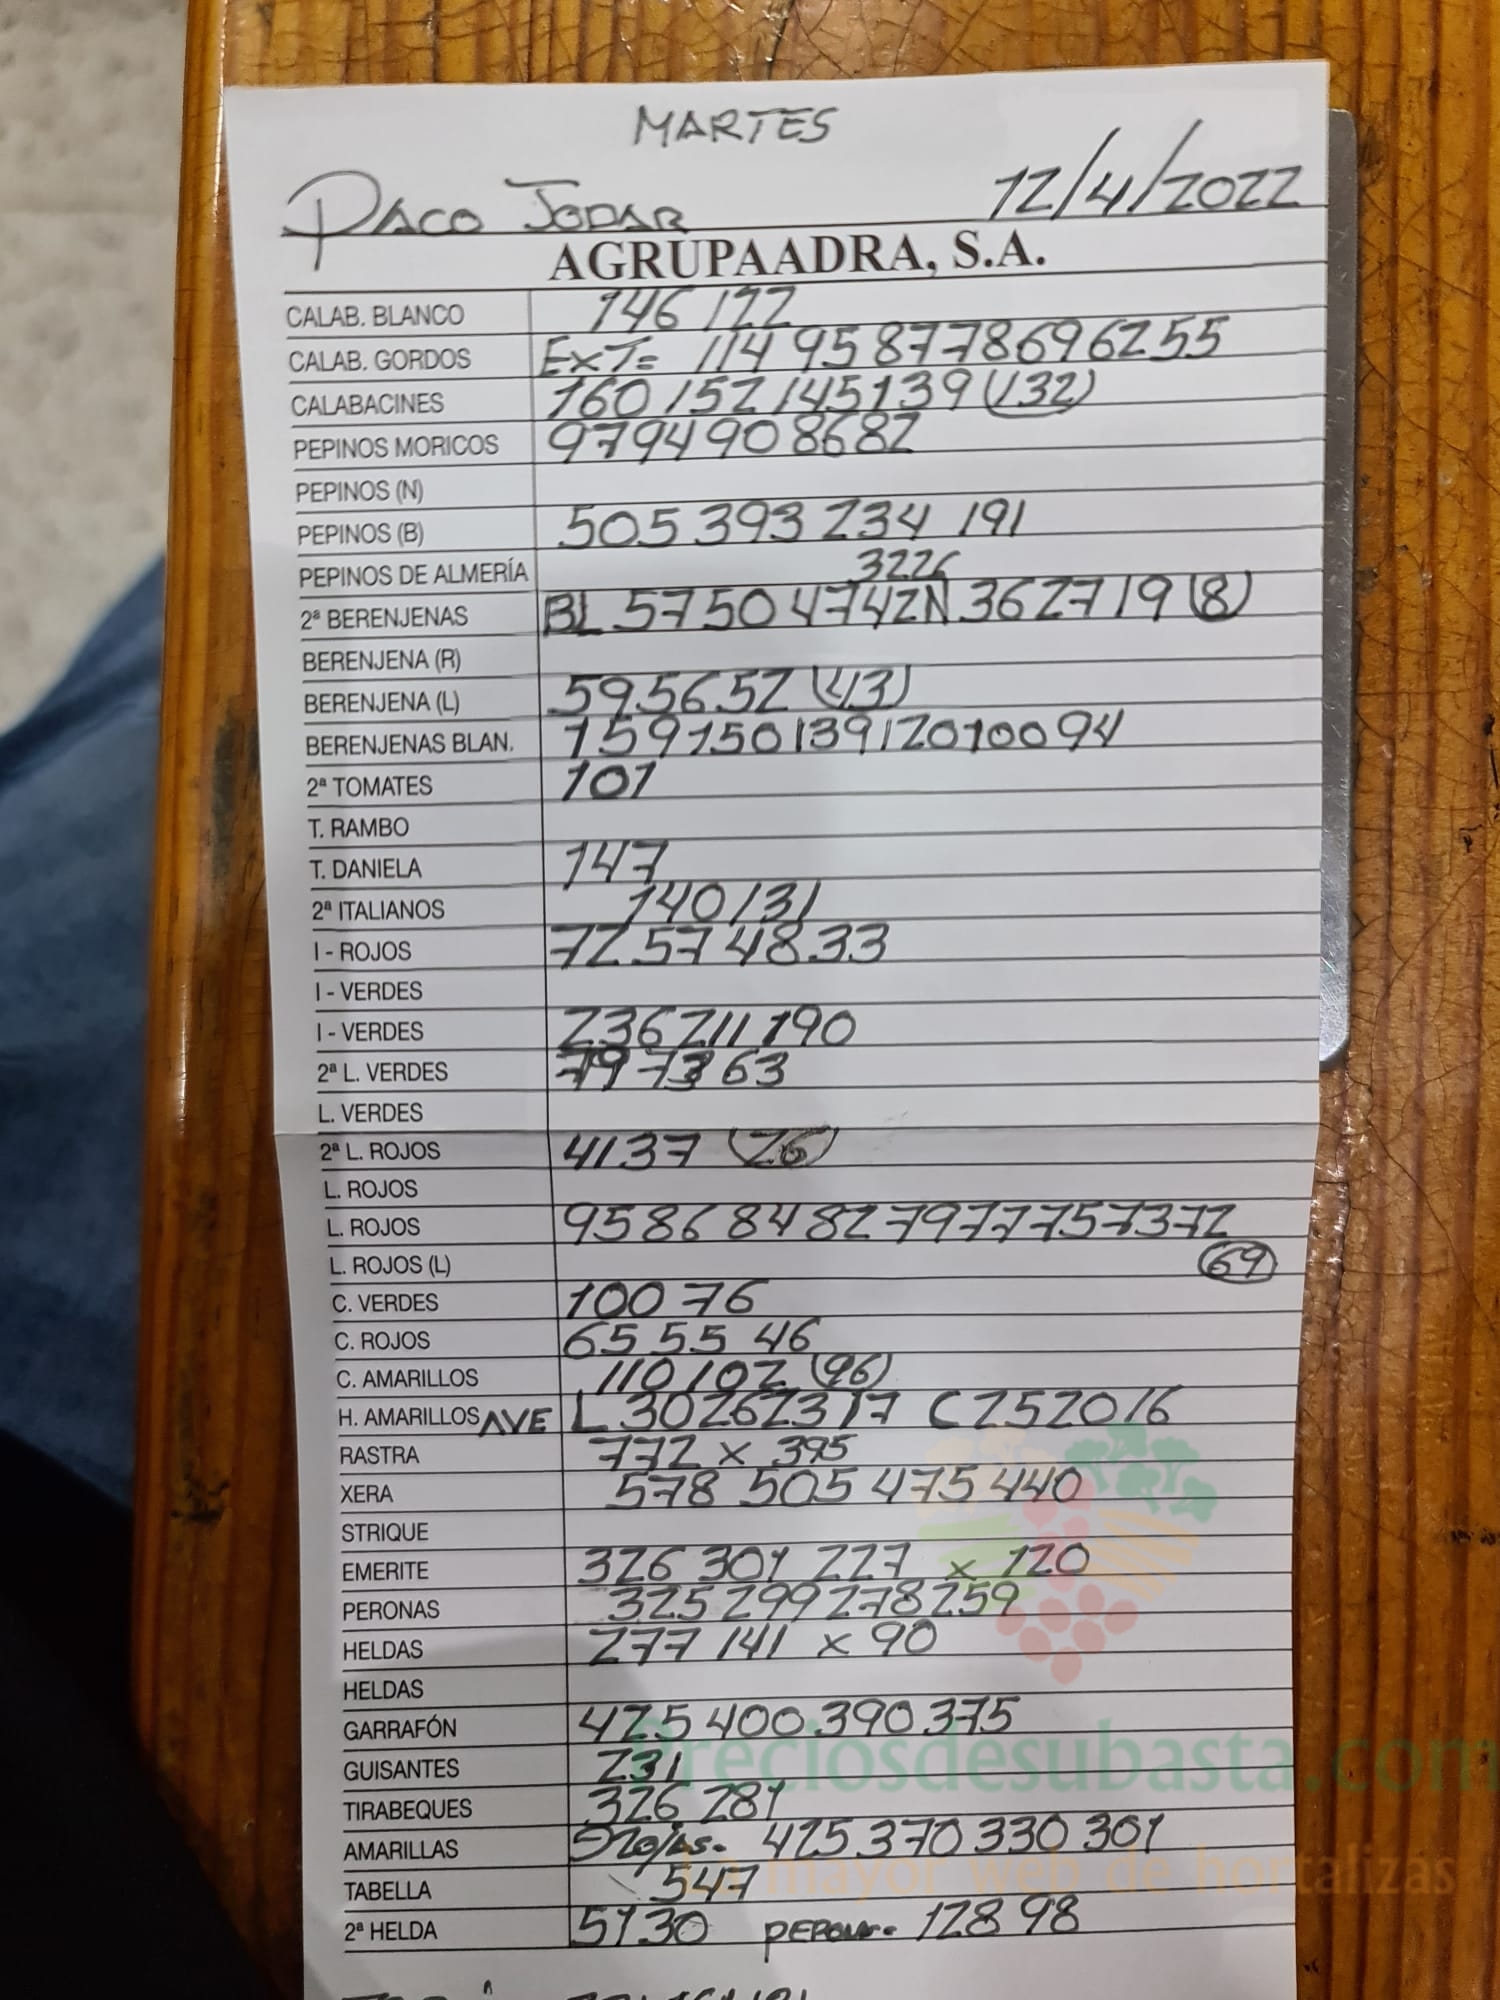 MARTES
PACO JODAR 12/4/2022
AGRUPAADRA, S.A.
CALAB. BLANCO 146 122
CALAB. GORDOS EXT= 114 95 87 78 69 62 55
CALABACINES 160 152 145 139 (132)
PEPINOS MORICOS 97 94 90 86 82
PEPINOS (N)
PEPINOS (B) 505 393 234 191
PEPINOS DE ALMERÍA 32 26
2ª BERENJENAS BL 57 50 47 42 N 36 27 19 (8)
BERENJENA (R)
BERENJENA (L) 59 56 52 (43)
BERENJENAS BLAN. 159 150 139 120 100 94
2ª TOMATES 101
T. RAMBO
T. DANIELA 147
2ª ITALIANOS 140 131
I - ROJOS 72 57 48 33
I - VERDES
I - VERDES 236 211 190
2ª L. VERDES 79 73 63
L. VERDES
2ª L. ROJOS 41 37 (26)
L. ROJOS
L. ROJOS 95 86 84 82 79 77 75 73 72
L. ROJOS (L) (69)
C. VERDES 100 76
C. ROJOS 65 55 46
C. AMARILLOS 110 102 (96)
H. AMARILLOS AVE L 30 26 23 17 C 25 20 16
RASTRA 772 x 395
XERA 578 505 475 440
STRIQUE
EMERITE 326 301 227 x 120
PERONAS 325 299 278 259
HELDAS 277 141 x 90
HELDAS
GARRAFÓN 425 400 390 375
GUISANTES 231
TIRABEQUES 326 281
AMARILLAS 425 370 330 301
TABELLA 547
2ª HELDA 51 30 PERONA= 128 98
Preciosdesubasta.com
La mayor web de hortalizas